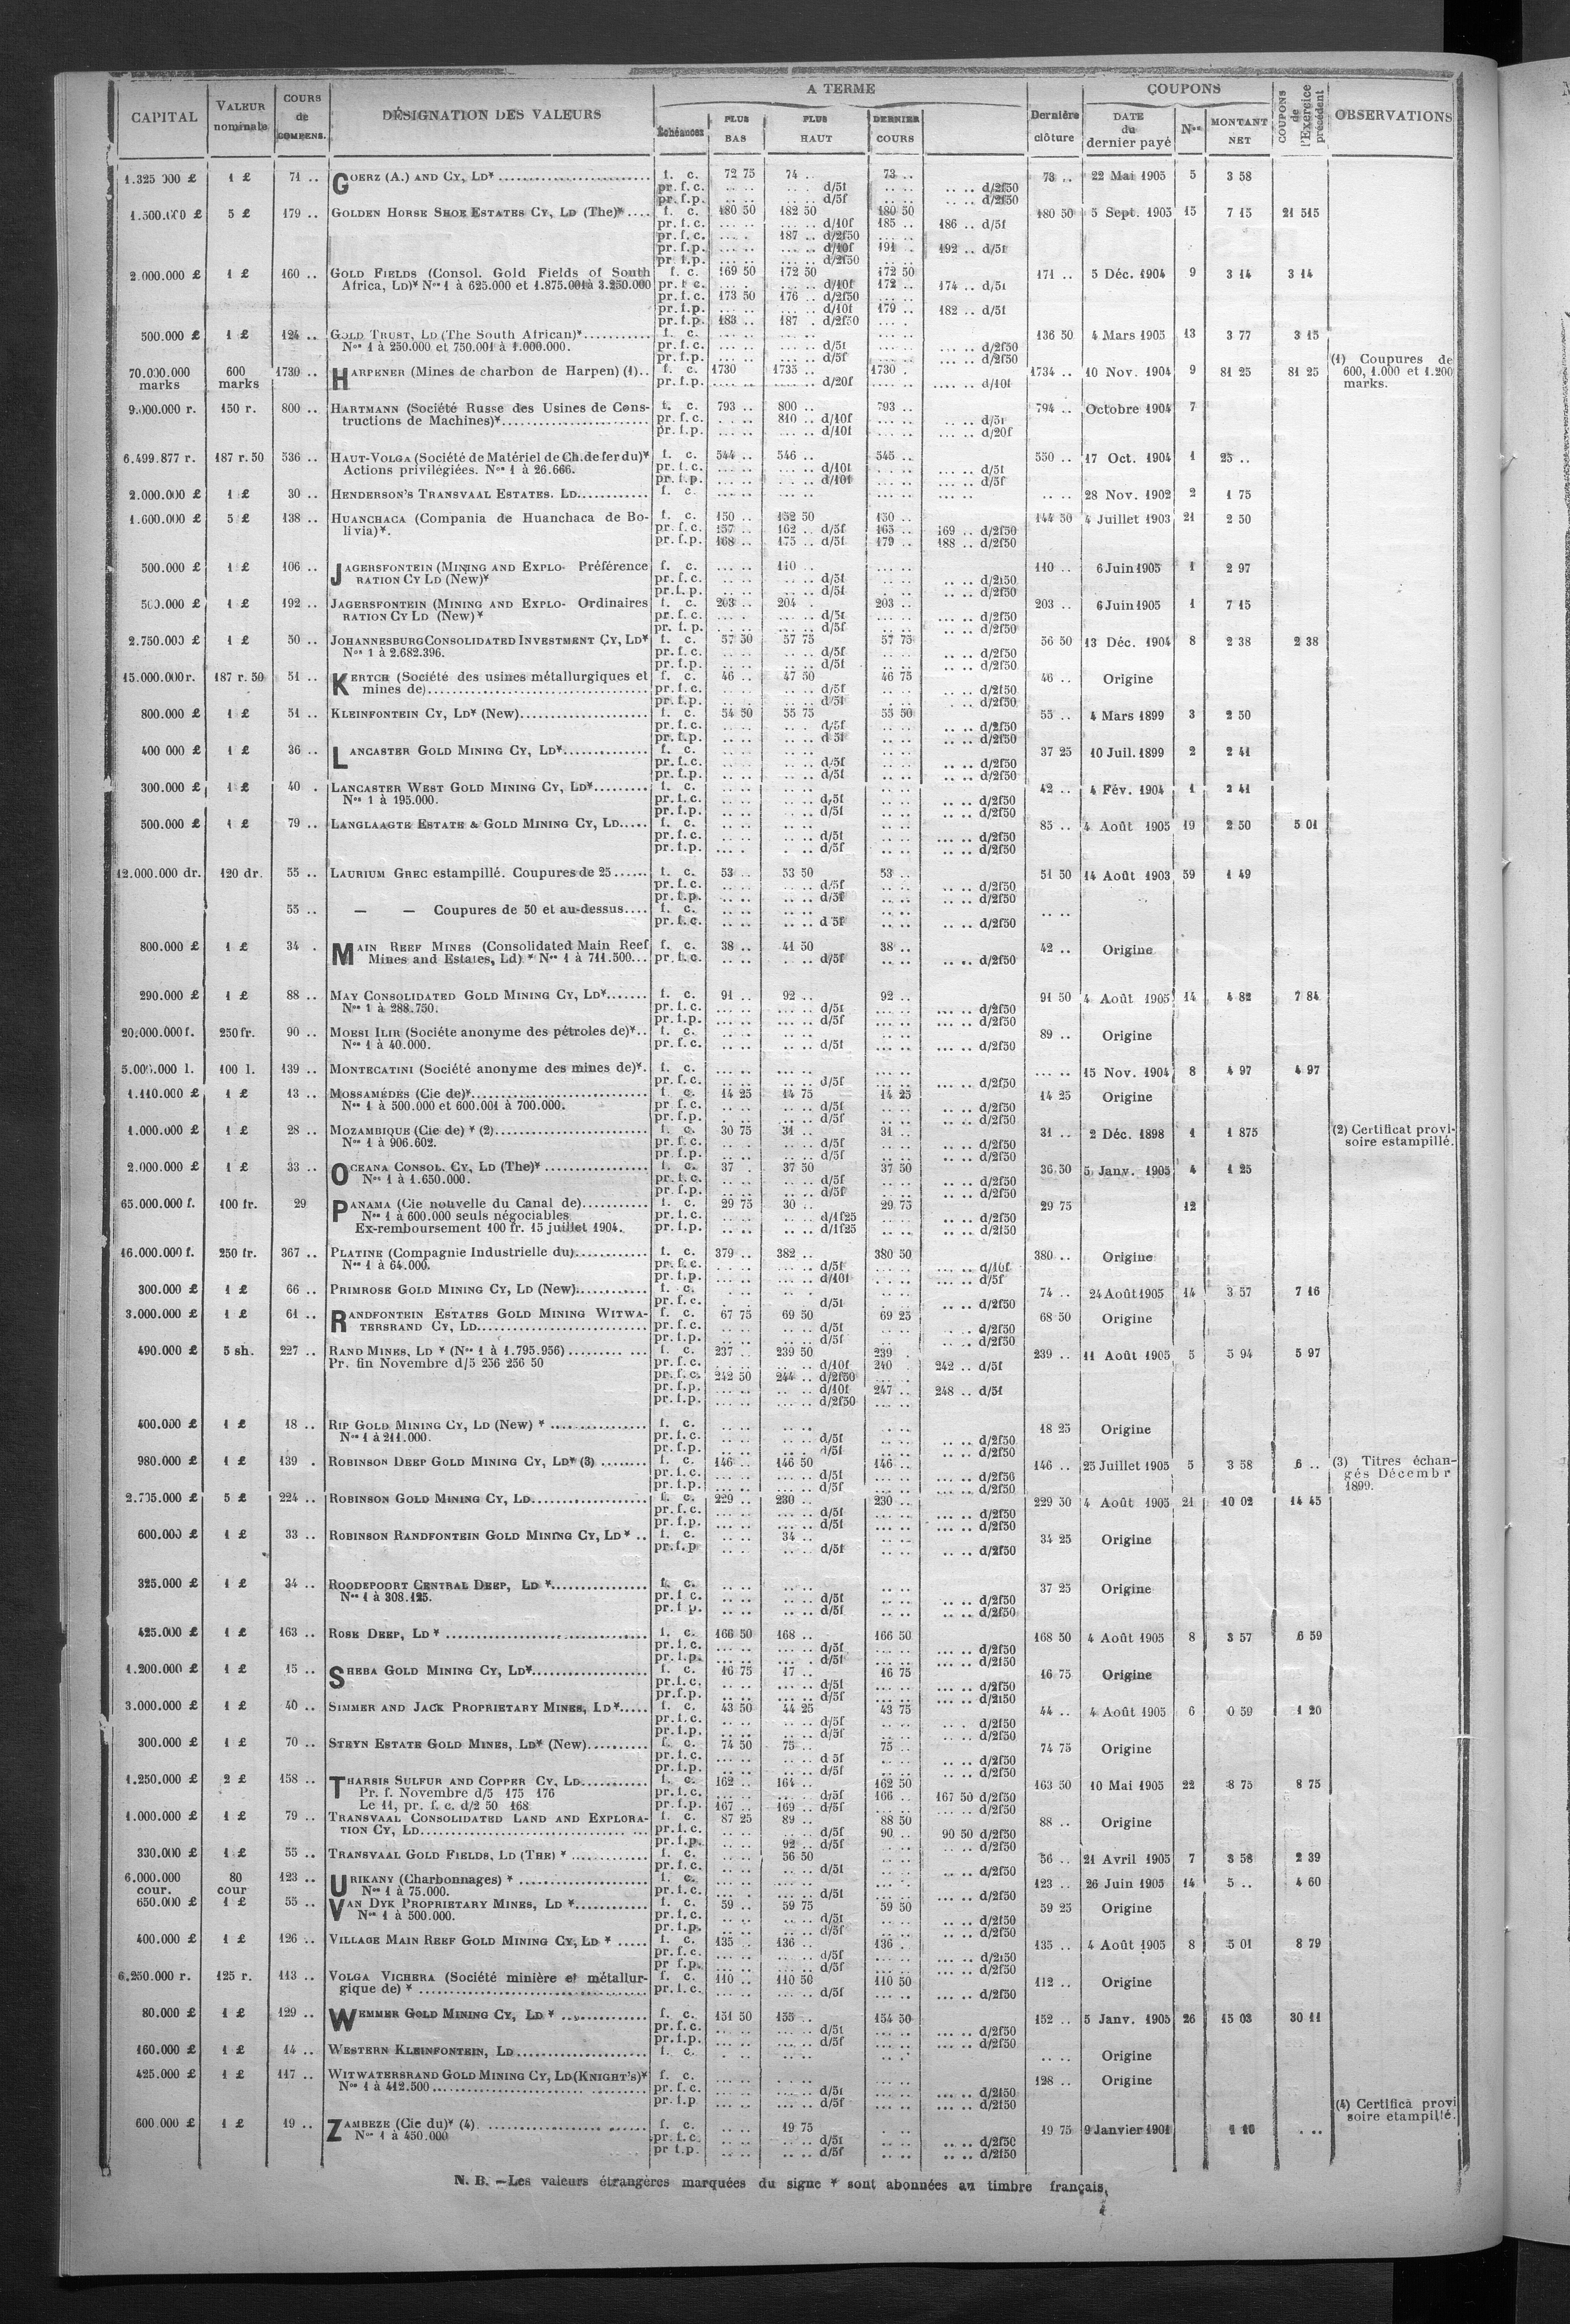 CAPITAL VALEUR nominale COURS de COMPENS. DÉSIGNATION DES VALEURS A TERME Dernière clôture COUPONS COUPONS de l'Exercice précédent OBSERVATIONS
Échéances PLUS BAS PLUS HAUT DERNIER COURS DATE du dernier payé Nos MONTANT NET
1 £ 71 .. GOERZ (A.) AND CY, LD* f. c. 72 75 74 .. 73 .. 73 .. 22 Mai 1905 5 3 58
pr. f. c. d/5f d/2f50
pr. f.p. d/5f d/2f50
5 £ 179 .. GOLDEN HORSE SHOE ESTATES CY, LD (The)* f. c. 180 50 182 50 180 50 180 50 5 Sept. 1905 15 7 15 21 515
pr. f. c. d/10f 185 .. 186 .. d/5f
pr. f.c. 187 .. d/2f50
pr. f.p. d/10f 191 . 192 .. d/5f
pr. f.p. d/2f50
2.000.000 £ 1 £ 160 .. GOLD FIELDS (Consol. Gold Fields of South f. c. 169 50 172 50 172 50 171 .. 5 Déc. 1904 9 3 14 3 14
Africa, LD)* Nos 1 à 625.000 et 1.875.001 à 3.250.000 pr. f. c. d/10f 172 .. 174 .. d/5f
pr. f.c. 173 50 176 .. d/2f50
pr. f.p. d/10f 179 .. 182 .. d/5f
pr. f.p. 183 .. 187 . d/2f50
500.000 £ 1 £ 124 .. GOLD TRUST, LD (The South African)* f. c. 136 50 4 Mars 1905 13 3 77 3 15
Nos 1 à 250.000 et 750.001 à 1.000.000. pr. f.c. d/5f d/2f50
pr. f.p. d/5f d/2f50
(1) Coupures de
600, 1.000 et 1.200
marks.
70.000.000 marks 600 marks 1730 .. HARPENER (Mines de charbon de Harpen) (1).. f. c. 1730 1735 .. 1730 . 1734 .. 10 Nov. 1904 9 81 25 81 25
pr. f.p. d/20f d/10f
9.000.000 r. 150 r. 800 .. HARTMANN (Société Russe des Usines de Cons- f. c. 793 .. 800 .. 793 .. 794 .. Octobre 1904 7
tructions de Machines)* pr. f. c. 810 .. d/10f d/5f
pr. f.p. d/10f d/20f
6.499.877 r. 187 r. 50 536 .. HAUT-VOLGA (Société de Matériel de Ch. de fer du)* f. c. 544 .. 546 .. 545 .. 550 .. 17 Oct. 1904 1 25 ..
Actions privilégiées. Nos 1 à 26.666. pr. f.c. d/10f d/5f
pr. f.p. d/10f d/5f
2.000.000 £ 1 £ 30 .. HENDERSON'S TRANSVAAL ESTATES. LD f. c. 28 Nov. 1902 2 1 75
1.600.000 £ 5 £ 138 .. HUANCHACA (Compania de Huanchaca de Bo- f. c. 150 .. 152 50 150 .. 144 50 4 Juillet 1903 21 2 50
livia)*. pr. f.c. 157 .. 162 .. d/5f 165 .. 169 .. d/2f50
pr. f.p. 168 .. 175 .. d/5f 179 .. 188 .. d/2f50
500.000 £ 1 £ 106 .. JAGERSFONTEIN (MINING AND EXPLO- Préférence f. c. 110 .. 110 .. 6 Juin 1905 1 2 97
RATION CY LD (New)* pr. f.c. d/5f d/2f50
pr. f. p. d/5f d/2f50
500.000 £ 1 £ 192 .. JAGERSFONTEIN (MINING AND EXPLO- Ordinaires f. c. 203 .. 204 . 203 .. 203 .. 6 Juin 1905 1 7 15
RATION CY LD (New)* pr. f.c. d/5f d/2f50
pr. f. p. d/5f d/2f50
2.750.000 £ 1 £ 50 .. JOHANNESBURG CONSOLIDATED INVESTMENT CY, LD* f. c. 57 50 57 75 57 75 56 50 13 Déc. 1904 8 2 38 2 38
Nos 1 à 2.682.396. pr. f.c. d/5f d/2f50
pr. f.p. d/5f d/2f50
15.000.000 r. 187 r. 50 51 .. KERTCH (Société des usines métallurgiques et f. c. 46 .. 47 50 46 75 46 .. Origine
mines de) pr. f.c. d/5f d/2f50
pr. f.p. d/5f d/2f50
800.000 £ 1 £ 51 .. KLEINFONTEIN CY, LD* (New) f. c. 54 50 55 75 55 50 55 .. 4 Mars 1899 3 2 50
pr. f.c. d/5f d/2f50
pr. f.p. d 5f d/2f50
400 000 £ 1 £ 36 .. LANCASTER GOLD MINING CY, LD* f. c. 37 25 10 Juil. 1899 2 2 41
pr. f.c. d/5f d/2f50
pr. f.p. d/5f d/2f50
300.000 £ 1 £ 40 . LANCASTER WEST GOLD MINING CY, LD* f. c. 42 .. 4 Fév. 1904 1 2 41
Nos 1 à 195.000. pr. f.c. d/5f d/2f50
pr. f.p. d/5f d/2f50
500.000 £ 1 £ 79 .. LANGLAAGTE ESTATE & GOLD MINING CY, LD f. c. 85 .. 4 Août 1905 19 2 50 5 01
pr. f.c. d/5f d/2f50
pr. f.p. d/5f d/2f50
12.000.000 dr. 120 dr. 55 .. LAURIUM GREC estampillé. Coupures de 25 f. c. 53 .. 53 50 53 .. 51 50 14 Août 1903 59 1 49
pr. f.c. d/5f d/2f50
pr. f.p. d/5f d/2f50
55 .. — — Coupures de 50 et au-dessus f. c.
pr. f.c. d 5f d/2f50
800.000 £ 1 £ 34 . MAIN REEF MINES (Consolidated Main Reef f. c. 38 .. 41 50 38 .. 42 .. Origine
Mines and Estates, Ld) * Nos 1 à 711.500... pr. f.c. d/5f d/2f50
290.000 £ 1 £ 88 .. MAY CONSOLIDATED GOLD MINING CY, LD* f. c. 91 .. 92 .. 92 .. 91 50 4 Août 1905 14 4 82 7 84
Nos 1 à 288.750. pr. f.c. d/5f d/2f50
pr. f.p. d/5f d/2f50
20.000.000 f. 250 fr. 90 .. MOESI ILIR (Société anonyme des pétroles de)*.. f. c. 89 .. Origine
Nos 1 à 40.000. pr. f.c. d/5f d/2f50
100 l. 139 .. MONTECATINI (Société anonyme des mines de)*. f. c. 15 Nov. 1904 8 4 97 4 97
pr. f.c. d/5f d/2f50
1.110.000 £ 1 £ 13 .. MOSSAMÉDÈS (Cie de)* f. c. 14 25 14 75 14 25 14 25 Origine
Nos 1 à 500.000 et 600.001 à 700.000. pr f.c. d/5f d/2f50
pr. f.p. d/5f d/2f50
1.000.000 £ 1 £ 28 .. MOZAMBIQUE (Cie de) * (2) f. c. 30 75 31 .. 31 .. 31 .. 2 Déc. 1898 1 1 875 (2) Certificat provi-
Nos 1 à 906.602. pr. f.c. d/5f d/2f50 soire estampillé.
pr. f.p. d/5f d/2f50
2.000.000 £ 1 £ 33 .. OCEANA CONSOL. CY, LD (The)* f. c. 37 . 37 50 37 50 36 50 5 Janv. 1905 4 1 25
Nos 1 à 1.650.000. pr. f.c. d/5f d/2f50
pr. f.p. d/5f d/2f50
65.000.000 f. 100 fr. 29 PANAMA (Cie nouvelle du Canal de) f. c. 29 75 30 .. 29 75 29 75 12
Nos 1 à 600.000 seuls négociables pr. f.c. d/1f25 d/2f50
Ex-remboursement 100 fr. 15 juillet 1904. pr. f.p. d/1f25 d/2f50
16.000.000 f. 250 fr. 367 .. PLATINE (Compagnie Industrielle du) f. c. 379 .. 382 .. 380 50 380 .. Origine
Nos 1 à 64.000. pr. f.c. d/5f d/10f
pr. f.p. d/10f d/5f
300.000 £ 1 £ 66 .. PRIMROSE GOLD MINING CY, LD (New) f. c. 74 .. 24 Août 1905 14 3 57 7 16
pr. f.c. d/5f d/2f50
3.000.000 £ 1 £ 61 .. RANDFONTEIN ESTATES GOLD MINING WITWA- f. c. 67 75 69 50 69 25 68 50 Origine
TERSRAND CY, LD pr. f.c. d/5f d/2f50
pr. f.p. d/5f d/2f50
490.000 £ 5 sh. 227 .. RAND MINES, LD * (Nos 1 à 1.795.956) f. c. 237 .. 239 50 239 . 239 .. 11 Août 1905 5 5 94 5 97
Pr. fin Novembre d/5 256 256 50 pr. f.c. d/10f 240 . 242 .. d/5f
pr. f.c. 242 50 244 .. d/2f50
pr. f.p. d/10f 247 .. 248 .. d/5f
pr. f.p. d/2f50
400.000 £ 1 £ 18 .. RIP GOLD MINING CY, LD (New) * f. c. 18 25 Origine
Nos 1 à 211.000. pr. f.c. d/5f d/2f50
pr. f.p. d/5f d/2f50
980.000 £ 1 £ 139 . ROBINSON DEEP GOLD MINING CY, LD* (3) f. c. 146 .. 146 50 146 .. 146 .. 25 Juillet 1905 5 3 58 6 .. (3) Titres échan-
pr. f.c. d/5f d/2f50 gés Décembr
pr. f.p. d/5f d/2f50 1899.
5 £ 224 .. ROBINSON GOLD MINING CY, LD f. c. 229 .. 230 .. 230 .. 229 50 4 Août 1905 21 10 02 14 45
pr. f.c. d/5f d/2f50
pr. f.p. d/5f d/2f50
600.000 £ 1 £ 33 .. ROBINSON RANDFONTEIN GOLD MINING CY, LD * .. f. c. 34 .. 34 25 Origine
pr. f.p d/5f d/2f50
325.000 £ 1 £ 34 .. ROODEPOORT CENTRAL DEEP, LD * f. c. 37 25 Origine
Nos 1 à 308.125. pr. f c. d/5f d/2f50
pr. f p. d/5f d/2f50
425.000 £ 1 £ 163 .. ROSE DEEP, LD * f. c. 166 50 168 .. 166 50 168 50 4 Août 1905 8 3 57 6 59
pr. f.c. d/5f d/2f50
pr. f.p. d/5f d/2f50
1.200.000 £ 1 £ 15 .. SHEBA GOLD MINING CY, LD* f. c. 16 75 17 .. 16 75 16 75 Origine
pr. f.c. d/5f d/2f50
pr. f.p. d/5f d/2f50
3.000.000 £ 1 £ 40 .. SIMMER AND JACK PROPRIETARY MINES, LD* f. c. 43 50 44 25 43 75 44 .. 4 Août 1905 6 0 59 1 20
pr. f.c. d/5f d/2f50
pr. f.p. d/5f d/2f50
300.000 £ 1 £ 70 .. STEYN ESTATE GOLD MINES, LD* (New) f. c. 74 50 75 .. 75 .. 74 75 Origine
pr. f.c. d 5f d/2f50
pr. f.p. d/5f d/2f50
1.250.000 £ 2 £ 158 .. THARSIS SULFUR AND COPPER CY, LD f. c. 162 .. 164 .. 162 50 163 50 10 Mai 1905 22 8 75 8 75
Pr. f. Novembre d/5 175 176 pr. f.c. d/5f 166 .. 167 50 d/2f50
Le 11, pr. f. c. d/2 50 168 pr. f.p. 167 .. 169 .. d/5f d/2f50
1.000.000 £ 1 £ 79 .. TRANSVAAL CONSOLIDATED LAND AND EXPLORA- f. c. 87 25 89 .. 88 50 88 .. Origine
TION CY, LD pr. f.c. d/5f 90 .. 90 50 d/2f50
pr. f.p. 92 .. d/5f d/2f50
330.000 £ 1 £ 55 .. TRANSVAAL GOLD FIELDS, LD (THE) * f. c. 56 50 56 .. 21 Avril 1905 7 3 58 2 39
pr. f.c. d/5f d/2f50
6.000.000 cour. 80 cour 123 .. URIKANY (Charbonnages) * f. c. 123 .. 26 Juin 1905 14 5 .. 4 60
Nos 1 à 75.000. pr. f.c. d/5f d/2f50
650.000 £ 1 £ 55 .. VAN DYK PROPRIETARY MINES, LD * f. c. 59 .. 59 75 59 50 59 25 Origine
Nos 1 à 500.000. pr. f.c. d/5f d/2f50
pr. f.p. d/5f d/2f50
400.000 £ 1 £ 126 .. VILLAGE MAIN REEF GOLD MINING CY, LD * f. c. 135 .. 136 .. 136 . 135 .. 4 Août 1905 8 5 01 8 79
pr. f.c. d/5f d/2f50
pr f.p. d/5f d/2f50
6.250.000 r. 125 r. 113 .. VOLGA VICHERA (Société minière et métallur- f. c. 110 .. 110 50 110 50 112 .. Origine
gique de) * pr. f.c. d/5f d/2f50
80.000 £ 1 £ 129 .. WEMMER GOLD MINING CY, LD * f. c. 151 50 155 .. 154 50 152 .. 5 Janv. 1905 26 15 03 30 11
pr. f.c. d/5f d/2f50
pr. f.p. d/5f d/2f50
160.000 £ 1 £ 14 .. WESTERN KLEINFONTEIN, LD f. c. Origine
425.000 £ 1 £ 117 .. WITWATERSRAND GOLD MINING CY, LD (KNIGHT'S)* f. c. 128 .. Origine
Nos 1 à 412.500 pr. f.c. d/5f d/2f50
pr. f.p d/5f d/2f50
(4) Certifica provi
soire etampillé.
600.000 £ 1 £ 19 .. ZAMBEZE (Cie du)* (4) f. c. 19 75 19 75 9 Janvier 1901
Nos 1 à 450.000 pr. f.c. d/5f d/2f50
pr f.p. d/5f d/2f50
N. B. — Les valeurs étrangères marquées du signe * sont abonnées au timbre français.